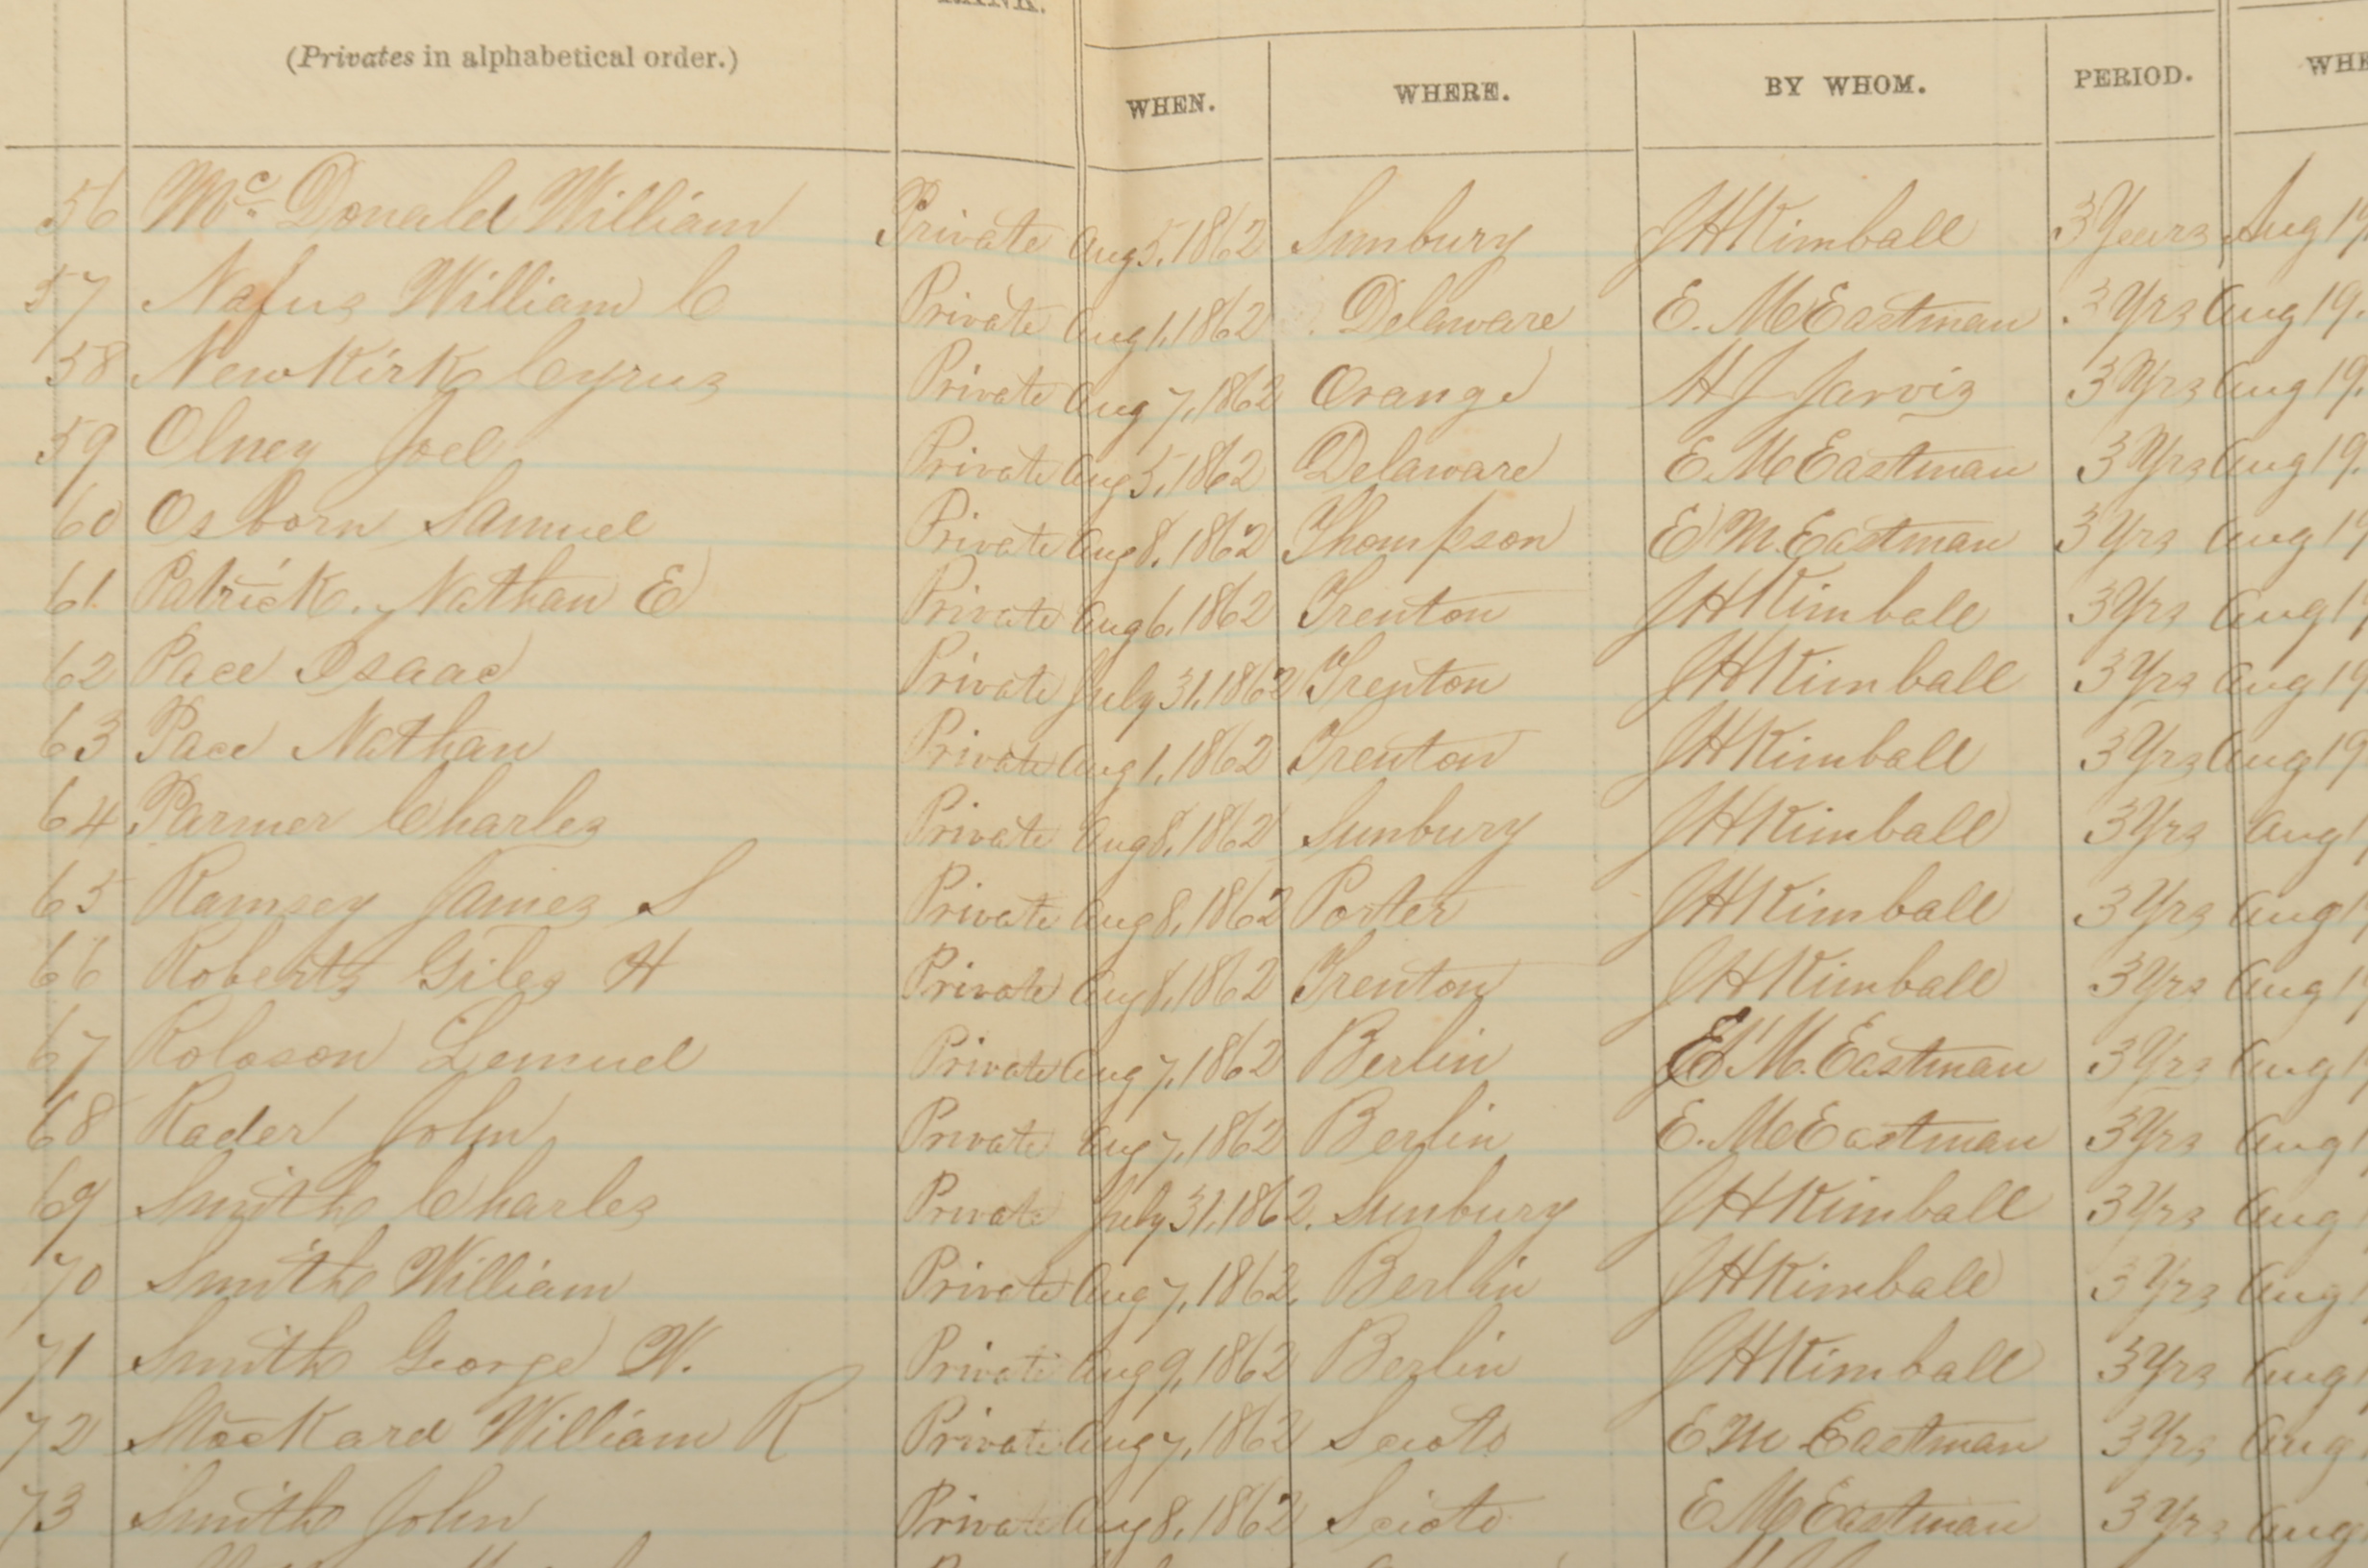 RANK.
(Privates in alphabetical order.) WHEN. WHERE. BY WHOM. PERIOD. WHE
56 Mc Donald William Private Aug 5, 1862 Sunbury J H Kimball 3 Years Aug 19.
57 Nafus William C Private Aug 1, 1862 Delaware E. M Eastman 3 Yrs Aug 19.
58 NewKirk Cyrus Private Aug 7, 1862 Orange H J Jarvis 3 Yrs Aug 19.
59 Olney Joel Private Aug 5, 1862 Delaware E M Eastman 3 Yrs Aug 19.
60 Osborn Samuel Private Aug 8, 1862 Thompson E M. Eastman 3 Yrs Aug 19
61 Patrick. Nathan E Private Aug 6, 1862 Trenton J H Kimball 3 Yrs Aug 19
62 Pace Isaac Private July 31, 1862 Trenton J H Kimball 3 Yrs Aug 19
63 Pace Nathan Private Aug 1, 1862 Trenton J H Kimball 3 Yrs Aug 19
64 Parmer Charles Private Aug 8, 1862 Sunbury J H Kimball 3 Yrs Aug 1
65 Ramsey James S Private Aug 8, 1862 Porter J H Kimball 3 Yrs Aug 1
66 Roberts Giles H Private Aug 8, 1862 Trenton J H Kimball 3 Yrs Aug 19
67 Roloson Lemuel Private Aug 7, 1862 Berlin E M. Eastman 3 Yrs Aug 1
68 Rader John Private Aug 7, 1862 Berlin E. M Eastman 3 Yrs Aug 1
69 Smith Charles Private July 31, 1862. Sunbury J H Kimball 3 Yrs Aug
70 Smith William Private Aug 7, 1862, Berlin J H Kimball 3 Yrs Aug 1
71 Smith George W. Private Aug 9, 1862 Berlin J H Kimball 3 Yrs Aug
72 Stockard William R Private Aug 7, 1862 Scioto E M Eastman 3 Yrs Aug
73 Smith John Private Aug 8, 1862 Scioto E M Eastman 3 Yrs Aug